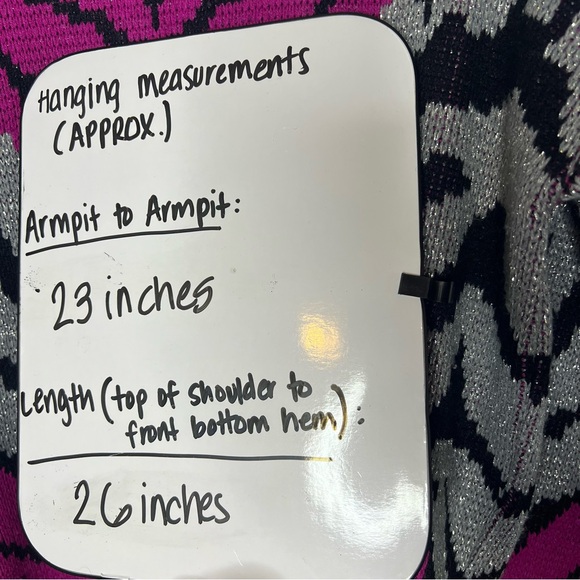 Hanging measurements
(APPROX.)
Armpit to Armpit:
23 inches
Length (top of shoulder to
front bottom hem):
26 inches